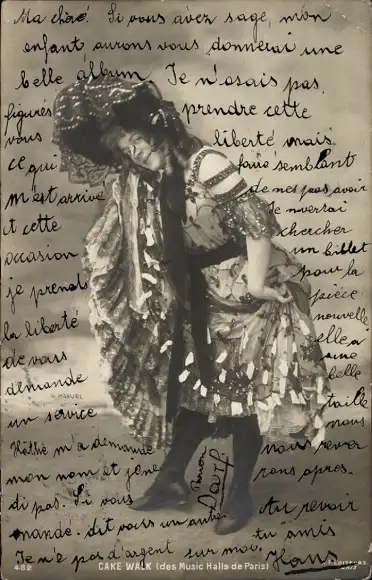 Ma chère. Si vous avez sage, mon
enfant, aurons vous donnerai une
belle album. Je n'osais pas
prendre cette
liberté mais
faire semblant
de nes pas avoir
Je n
chercher
un billet
pour la
pièce
nouvelle
elle a
une
belle
taille
nous
nous rever
rons apres.
Au revoir
tu amis
Hans
figurés
vous
ce qui
m'est arrivé
et cette
occasion
je prends
la liberté
de vous
demande
un service
m'a demande
mon nom et je ne
di pas. Si vous
mande. dit vous un autre
Je n'e pas d'argent sur moi.
482 CAKE WALK (des Music Halls de Paris)